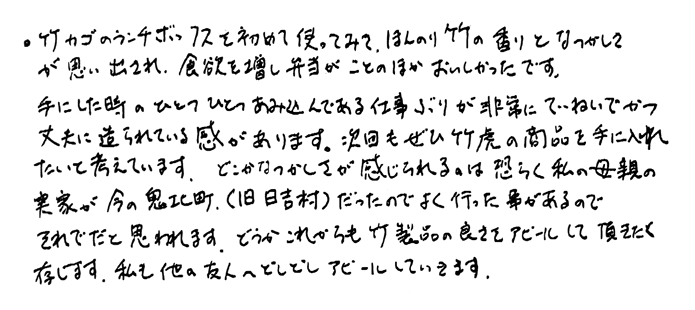 ・竹カゴのランチボックスを初めて使ってみて、ほんのり竹の香りとなつかしさ
が思い出され、食欲を増し弁当がことのほかおいしかったです。
手にした時のひとつひとつあみ込んである仕事ぶりが非常にていねいでかつ
丈夫に造られている感があります。次回もぜひ竹虎の商品を手に入れ
たいと考えています。どこかなつかしさが感じられるのは恐らく私の母親の
実家が今の鬼北町、(旧日吉村)だったのでよく行った事があるので
それでだと思われます。どうかこれからも竹製品の良さをアピールして頂きたく
存じます。私も他の友人へどしどしアピールしていきます。